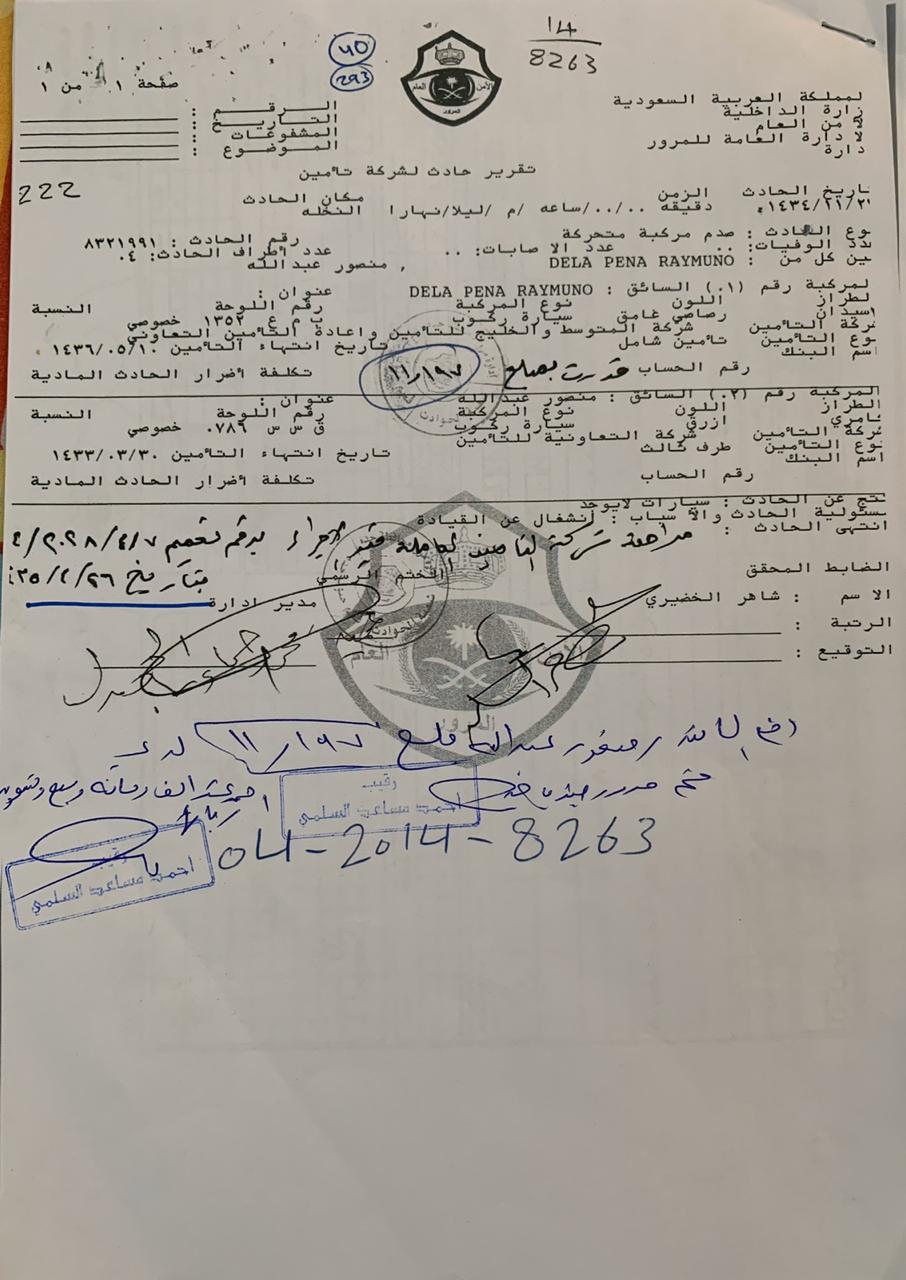 14
8263
40
293
صفحة ١ من ١
لمملكة العربية السعودية
زارة الداخلية
من العام
لادارة العامة للمرور
دارة
الرقم :
التاريخ :
المشفوعات :
الموضوع :
الأمن العام
المرور
تقرير حادث لشركة تأمين
222
اريخ الحادث الزمن مكان الحادث
١٤٣٤/١١/٢ دقيقه ../../ساعه /م /ليلا/نهارا النخله
وع الحادث : صدم مركبة متحركة رقم الحادث : ٨٣٢١٩٩١
دد الوفيات: .. عدد الاصابات: .. عدد أطراف الحادث: ٠٤
ين كل من : DELA PENA RAYMUNO , منصور عبدالله
لمركبة رقم (٠١) السائق : DELA PENA RAYMUNO عنوان :
لطراز اللون نوع المركبة رقم اللوحة النسبة
رصاصي غامق سيارة ركوب ب م ع ١٣٥٢ خصوصي
ركة التأمين شركة المتوسط والخليج للتأمين واعادة التأمين التعاوني
وع التأمين تأمين شامل تاريخ انتهاء التأمين ١٤٣٦/٠٥/١٠
اسم البنك رقم الحساب تكلفة أضرار الحادث المادية
قدرت بمبلغ ١١/١٩٧
المركبة رقم (٠٢) السائق : منصور عبدالله عنوان :
لطراز اللون نوع المركبة رقم اللوحة النسبة
امري ازرق سيارة ركوب ق س س ٠٧٨٩ خصوصي
ركة التأمين شركة التعاونية للتأمين
وع التأمين طرف ثالث تاريخ انتهاء التأمين ١٤٣٣/٠٣/٣٠
اسم البنك رقم الحساب تكلفة أضرار الحادث المادية
نتج عن الحادث : سيارات لايوجد
سئولية الحادث والاسباب : إنشغال عن القيادة
انتهى الحادث :
مراجعة شركة التأمين
الختم الرسمي
الضابط المحقق
الاسم : شاهر الخضيري
مدير ادارة
الرتبة :
التوقيع :
العام
المرور
منصور عبدالله مبلغ ١١/١٩٧
رقيب
احمد مساعد السلمي
04-2014-8263
رقيب
احمد مساعد السلمي